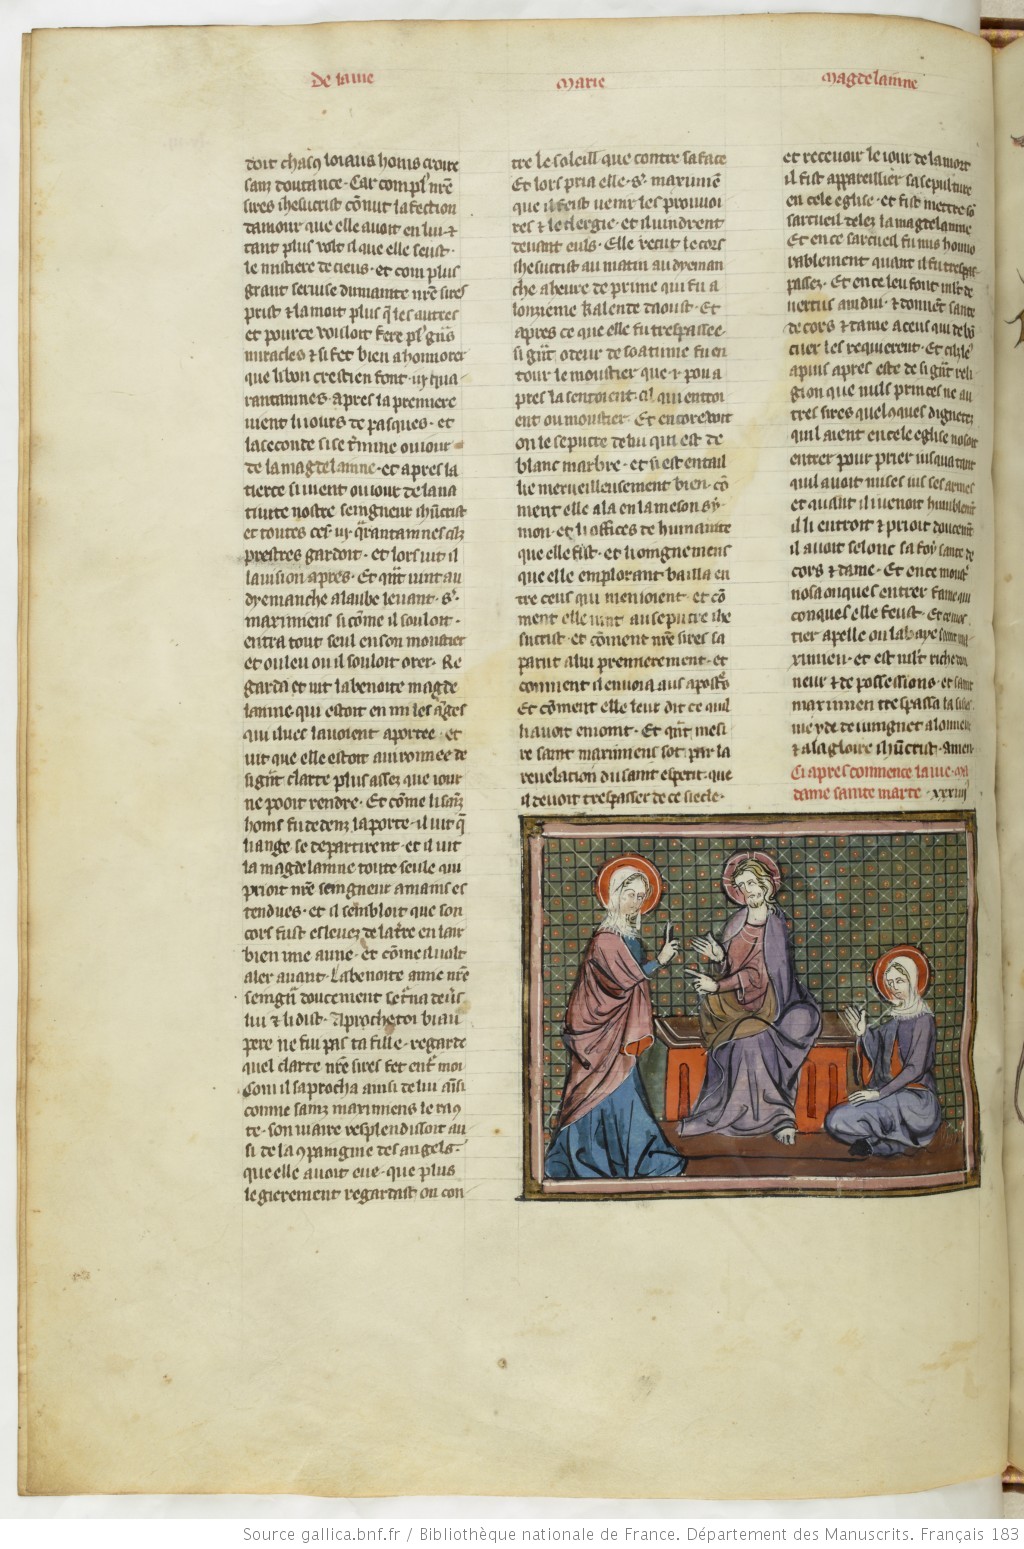 De la vie
Marie
Magdelainne
doit chascꝰ loiaus hons croire
sanz doutance · Car com plꝰ nr̃e
sires ihesucrist cõnut lafection
damour que elle auoit en lui · ⁊
tant plus volt il que elle seust ·
le mistere de cieus · et com plus
grant seruise dumainne nr̃e sires
prist ⁊ la moit plus q̃ les autres
et pource vouloit fere plꝰ gñs
miracles ⁊ si fet bien a honnorer
que li bon crestien font · iij · qua
rantainnes · apres la premiere
vient li iours de pasques · et
la seconde si se t̃mine ou iour
de la magdelainne · et apres la
tierce si vient ou iour de la na
tiuite nostre seingneur ih̃ucrist
et toutes ces · iij · q̃rantainnes cilz
prestres gardoit · et lors vit il
la vision apres · Et q̃nt vint au
dyemanche a laube leuant · s ·
maximiens si cõme il souloit ·
entra tout seul en son moustier
et ou leu ou il souloit orer · Re
garda et vit la benoite magde
lainne qui estoit en mi les ãges
qui illuec lauoient aportee · et
vit que elle estoit auironnee de
si g̃nt clarte plus assez que iour
ne pooit rendre · Et cõme li sainz
homs fu dedenz la porte · il vit q̃
li ange se departirent · et il vit
la magdelainne toute seule qui
prioit nr̃e seingneur a mains es
tendues · et il sembloit que son
cors fust esleuez de la tr̃e en lair
bien vne aune · et cõme il volt
aler auant · La benoite amie nr̃e
seingñ doucement se t̃na deũs
lui ⁊ li dist · Aproche toi biau
pere ne fui pas ta fille · regarde
quel clarte nr̃e sires fet ent̃ moi
Com il saprocha ainsi de lui aũsi
comme sainz maximiens le raq̃
te · son viaire resplendissoit au
si de la 9paingnie des angels ·
que elle auoit eue · que plus
legierement regardast on con
tre le soleill que contre sa face
Et lors pria elle · s · maximiẽ
que il feist venir les prouuoi
res ⁊ le clergie · et il vindrent
deuant euls · Elle recut le cors
ihesucrist au matin au dyeman
che a heure de prime qui fu a
lonzieme kalende daoust · Et
apres ce que elle fu trespassee
si g̃nt odeur de soatume fu en
tour le moustier que · ⁊ pou a
pres la sentoient cil qui entroi
ent ou moustier · Et encore voit
on le sepucre de lui qui est de
blanc marbre · et si est entail
lie merueilleusement bien · cõ
ment elle ala en la meson sy
mon · et li offices de humanite
que elle fist · et li oingnemens
que elle emplorant bailla en
tre ceus qui menioient · et cõ
ment elle vint au sepucre ihe
sucrist · et cõment nr̃e sires sa
parut a lui premierement · et
comment il enuoia aus apostꝰ
Et cõment elle leur dit ce quil
li auoit enioint · Et q̃nt mesi
re saint maximiens sot par la
reuelation du saint esperit · que
il deuoit trespasser de ce siecle ·
et receuoir le iour de la mort
il fist appareillier sa sepulture
en cele eglise · et fist mettre sõ
sarcueil delez la magdelainne
Et en ce sarcueil fu mis honno
rablement quant il fu trespas
passez · Et en ce leu font mlt̃ de
vertus amdui · ⁊ donnẽt sante
de cors ⁊ dame a ceus qui de bõ
cuer les requierent · Et cilz le
apius apres este de si g̃nt reli
gion que nuls princes ne au
tres sires quelques dignetez
quil aient en cele eglise nosoit
entrer pour prier iusqua tant
quil auoit mises ius ses armes
et quant il i venoit humblemẽt
il li entroit ⁊ prioit doucemẽt
il auoit selonc sa foy sante de
cors ⁊ dame · Et en ce moustꝰ
nosa onques entrer fame qui
conques elle feust · Et ce mos
tier apelle on labaye saint ma
ximien · et est mlt̃ riche don
neur ⁊ de possessions · et saint
maximien trespassa la siste
ide de iuingnet a lonneur
⁊ a la gloire ih̃ucrist · Amen ·
Ci apres commence la vie ma
dame sainte marte · xxxiiij
Source gallica.bnf.fr / Bibliothèque nationale de France. Département des Manuscrits. Français 183